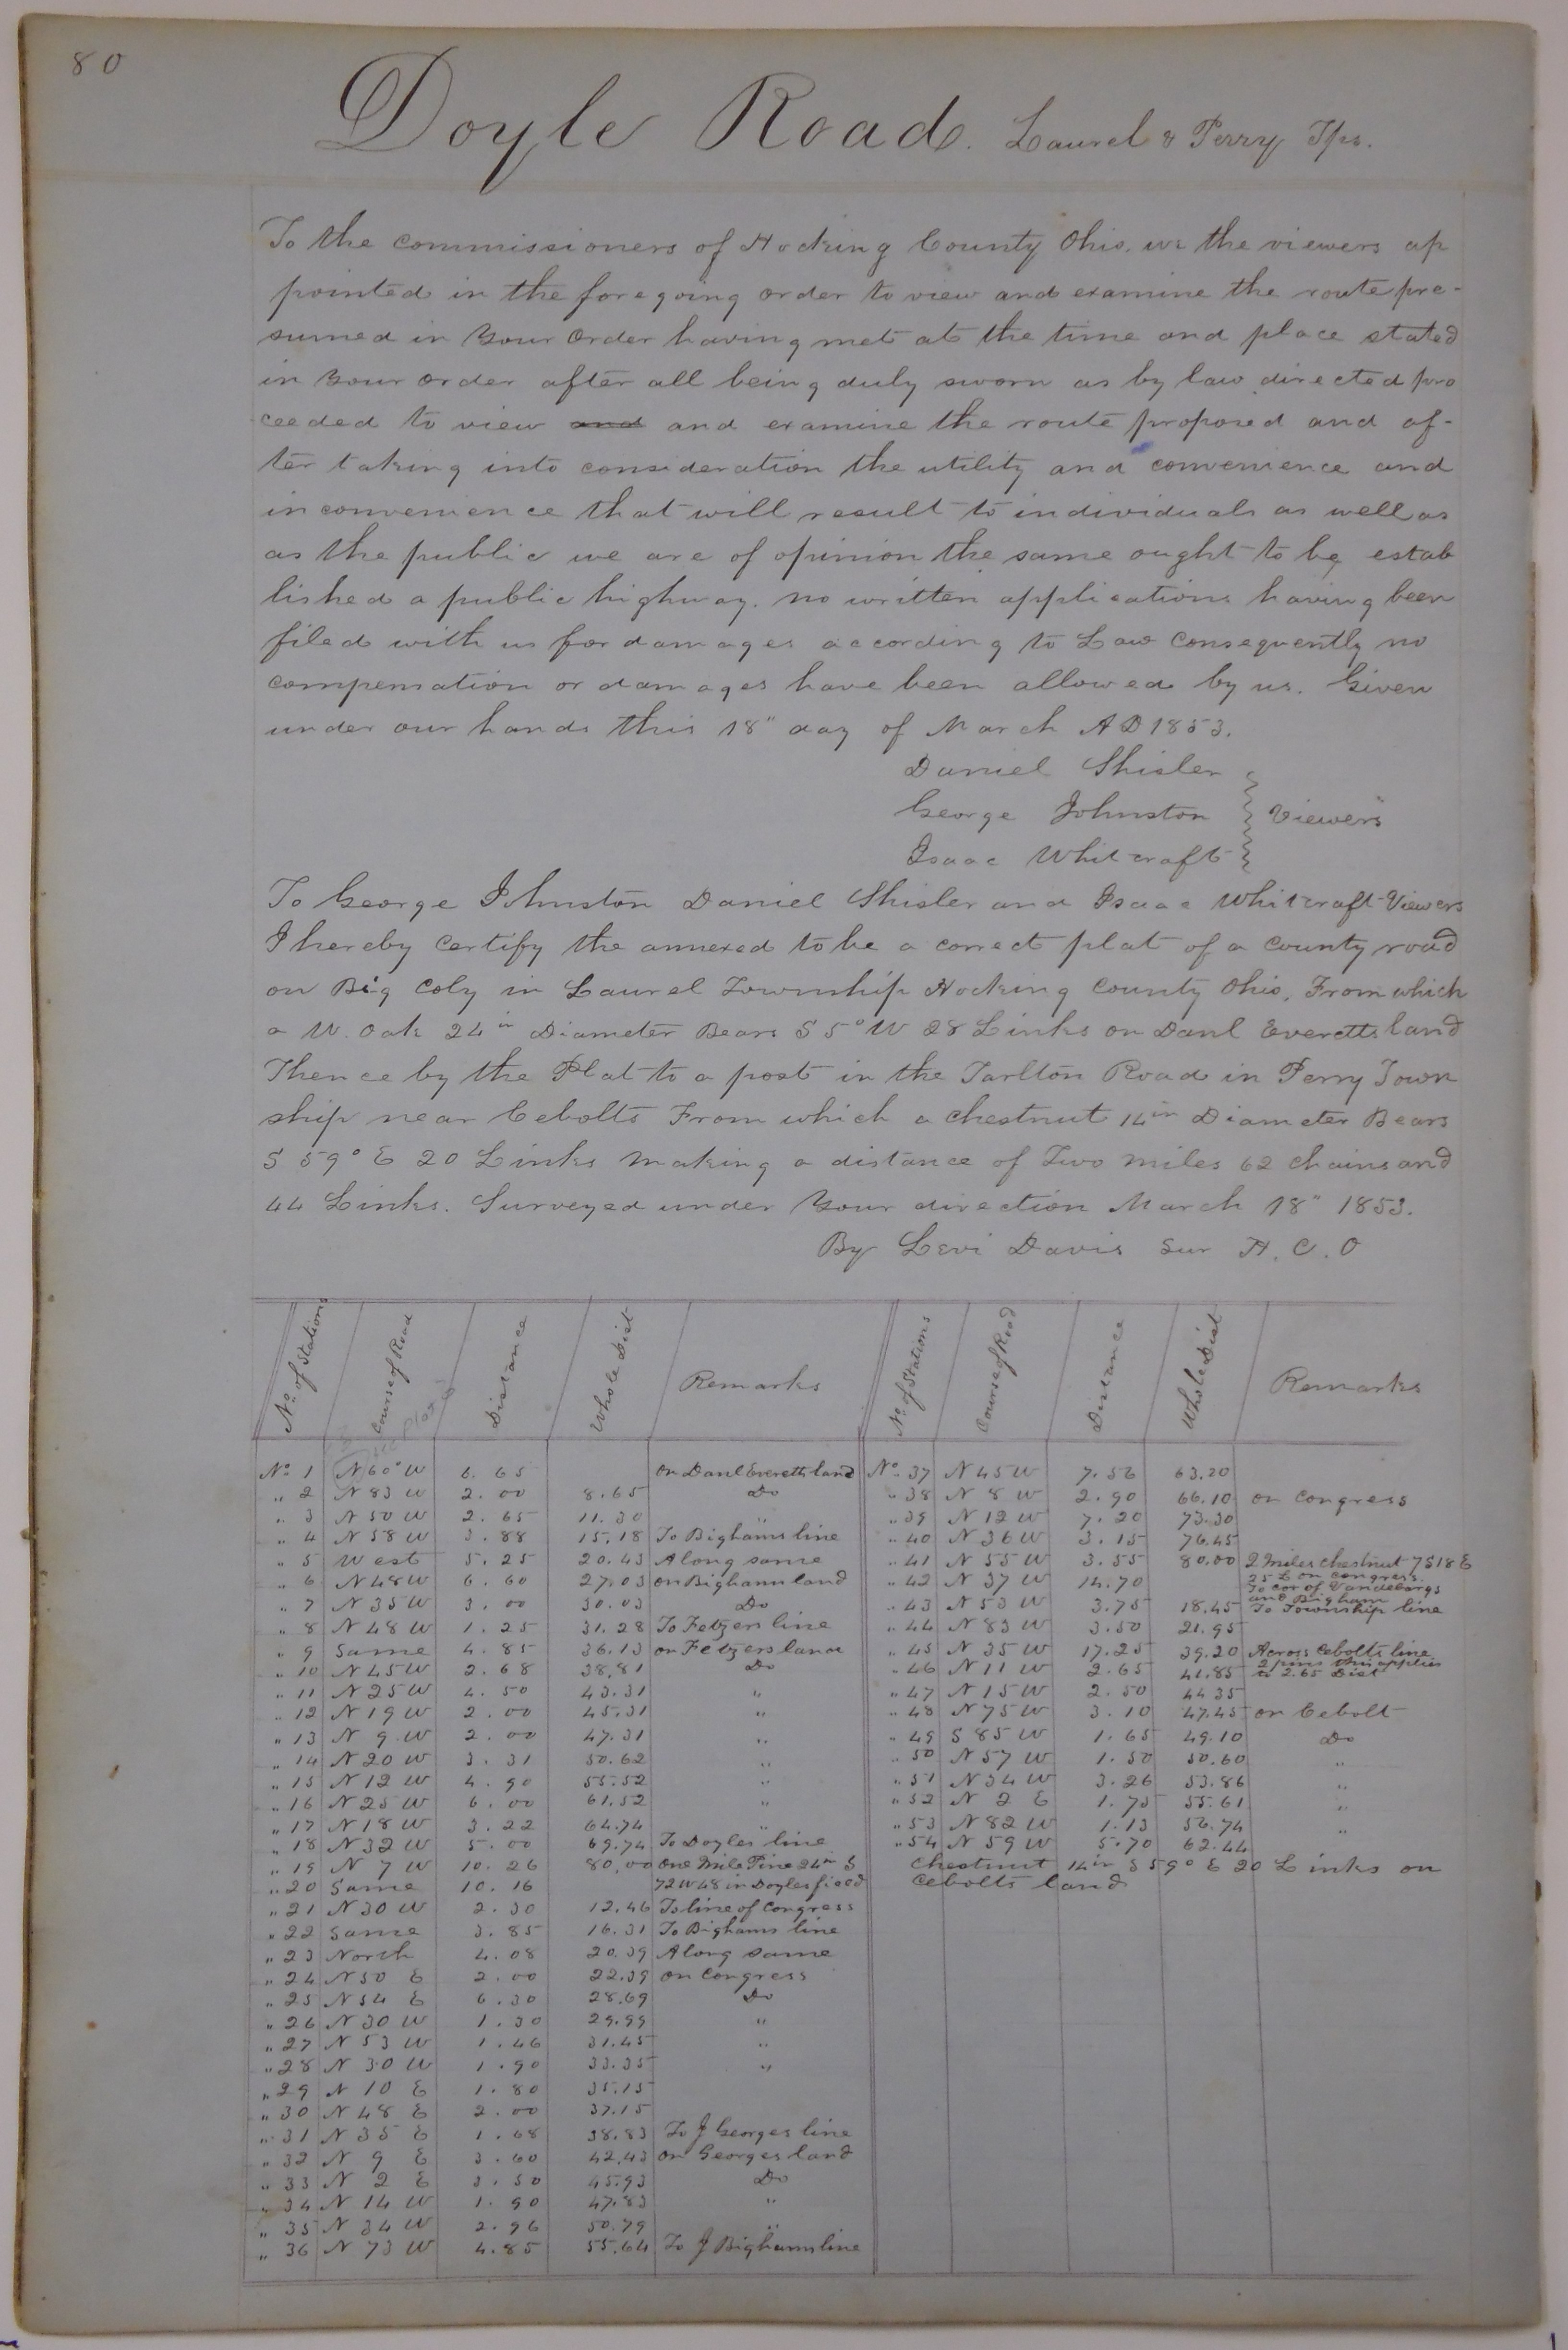 80
Doyle Road. Laurel & Perry Tps.
To the commissioners of Hocking County Ohio. we the viewers ap
pointed in the foregoing order to view and examine the route pre-
sumed in your order having met at the time and place stated
in your order after all being duly sworn as by law directed pro
ceeded to view and and examine the route proposed and af-
ter taking into consideration the utility and convenience and
inconvenience that will result to individuals as well as
as the public we are of opinion the same ought to be estab
lished a public highway. no written applications having been
filed with us for damages according to Law Consequently no
compensation or damages have been allowed by us. Given
under our hands this 18" day of March AD 1853.
Daniel Shisler
George Johnston } Viewers
Isaac Whitcraft
To George Johnston Daniel Shisler and Isaac Whitcraft Viewers
I hereby Certify the annexed to be a correct plat of a County road
on Big Coly in Laurel Township Hocking County Ohio, From which
a W. Oak 24 in Diameter Bears S 5° W 28 Links on Danl Everetts land
Thence by the Plat to a post in the Tarlton Road in Perry Town
ship near Cebolts From which a chestnut 14 in Diameter Bears
S 59° E 20 Links making a distance of Two miles 62 chains and
44 Links. Surveyed under Your direction March 18" 1853.
By Levi Davis Sur H. C. O
No. of Stations Course of Road Distance Whole Dist Remarks No. of Stations Course of Road Distance Whole Dist Remarks
No. 1 N 60° W 6.65 on Danl Everetts land
" 2 N 83 W 2.00 8.65 Do
" 3 N 50 W 2.65 11.30 "
" 4 N 58 W 3.88 15.18 To Bighams line
" 5 West 5.25 20.43 Along same
" 6 N 48 W 6.60 27.03 on Bigham land
" 7 N 35 W 3.00 30.03 Do
" 8 N 48 W 1.25 31.28 To Fetzers line
" 9 Same 4.85 36.13 on Fetzers land
" 10 N 45 W 2.68 38.81 Do
" 11 N 25 W 4.50 43.31 "
" 12 N 19 W 2.00 45.31 "
" 13 N 9 W 2.00 47.31 "
" 14 N 20 W 3.31 50.62 "
" 15 N 12 W 4.90 55.52 "
" 16 N 25 W 6.00 61.52 "
" 17 N 18 W 3.22 64.74 "
" 18 N 32 W 5.00 69.74 To Doyles line
" 19 N 7 W 10.26 80.00 One Mile Pine 24 in S
" 20 Same 10.16 72 W 48 in Doyles field
" 21 N 30 W 2.30 12.46 To line of Congress
" 22 Same 3.85 16.31 To Bighams line
" 23 North 4.08 20.39 Along same
" 24 N 50 E 2.00 22.39 on Congress
" 25 N 54 E 6.30 28.69 Do
" 26 N 30 W 1.30 29.99 "
" 27 N 53 W 1.46 31.45 "
" 28 N 30 W 1.90 33.35 "
" 29 N 10 E 1.80 35.15
" 30 N 48 E 2.00 37.15
" 31 N 35 E 1.68 38.83 To J Georges line
" 32 N 9 E 3.60 42.43 on Georges land
" 33 N 2 E 3.50 45.93 Do
" 34 N 14 W 1.90 47.83 "
" 35 N 34 W 2.96 50.79 "
" 36 N 73 W 4.85 55.64 To J Bighams line
No. 37 N 45 W 7.56 63.20
" 38 N 8 W 2.90 66.10 on Congress
" 39 N 12 W 7.20 73.30
" 40 N 36 W 3.15 76.45
" 41 N 55 W 3.55 80.00 2 Miles chestnut 7 S 18 E
25 L on congress.
" 42 N 37 W 14.70 To cor of Vandebargs
and Bigham
" 43 N 53 W 3.75 18.45 To Township line
" 44 N 83 W 3.50 21.95
" 45 N 35 W 17.25 39.20 Across Cebolts line
" 46 N 11 W 2.65 41.85 2 pins this applies
to 2.65 Dist
" 47 N 15 W 2.50 44.35
" 48 N 75 W 3.10 47.45 on Cebolt
" 49 S 85 W 1.65 49.10 Do
" 50 N 57 W 1.50 50.60 "
" 51 N 34 W 3.26 53.86 "
" 52 N 2 E 1.75 55.61 "
" 53 N 82 W 1.13 56.74 "
" 54 N 59 W 5.70 62.44
Chestnut 14 in S 59° E 20 Links on
Cebolts land